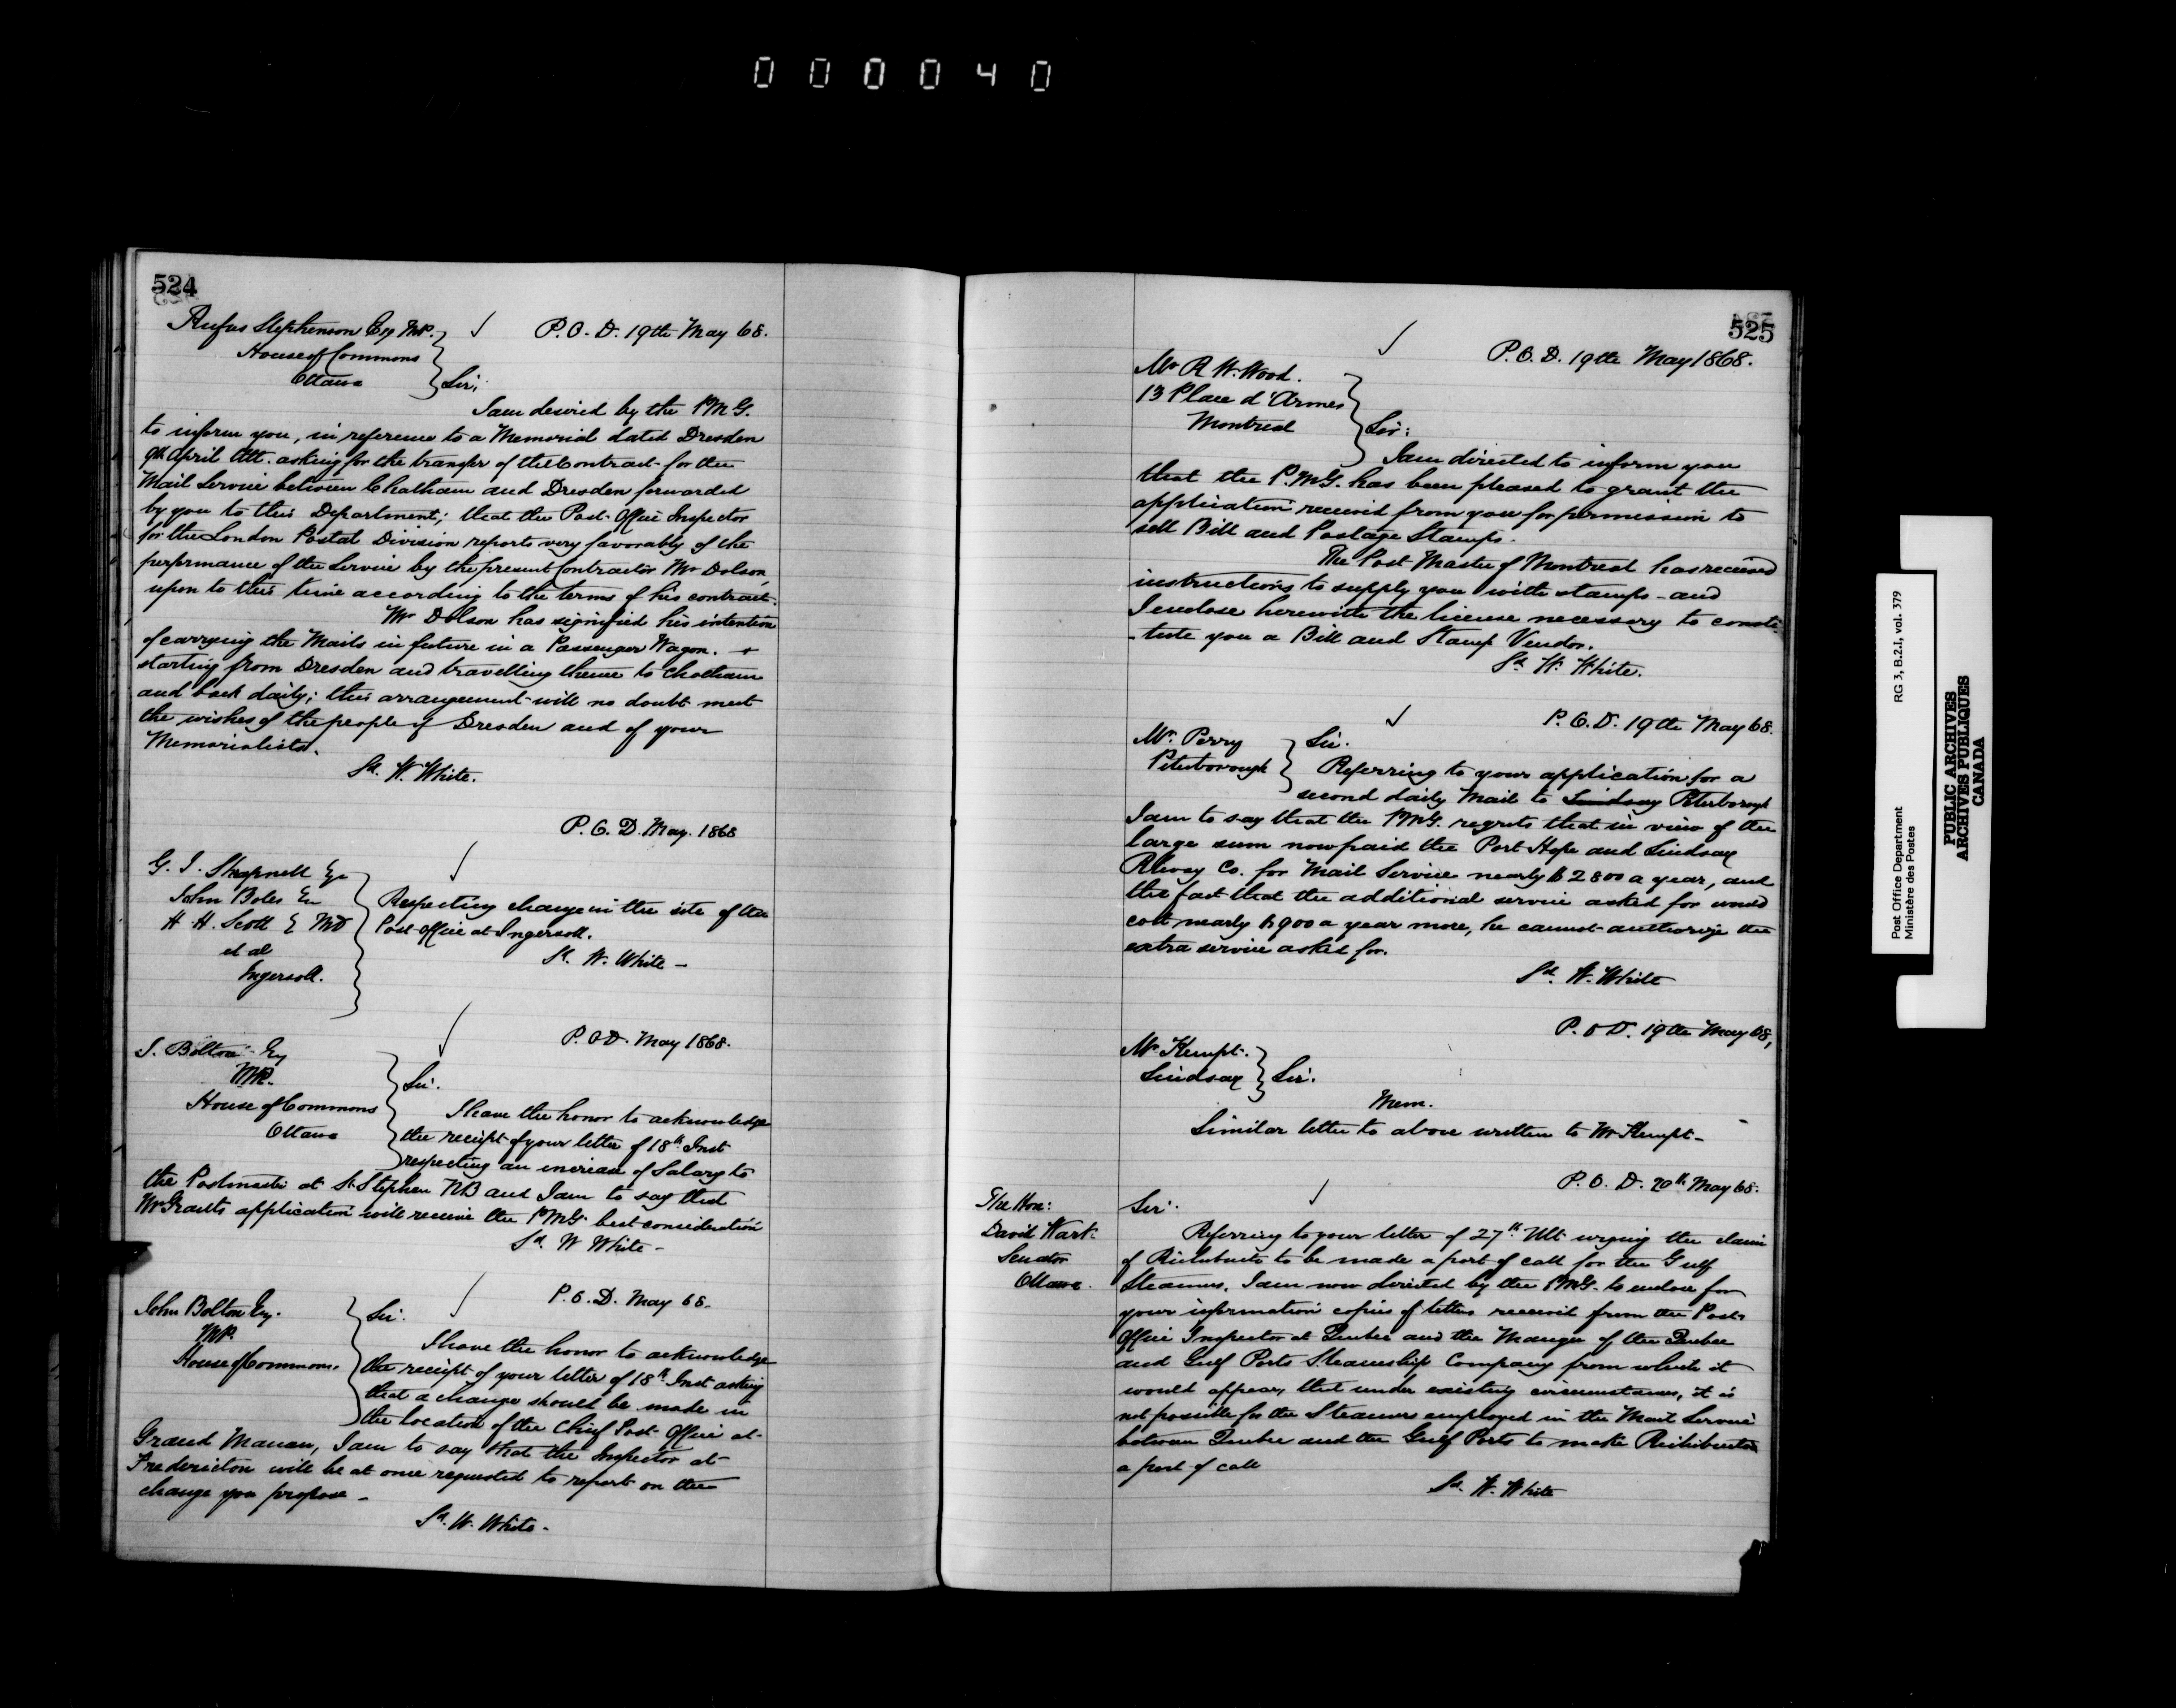 000040
524
Rufus Stephenson Esq MP.
House of Commons
Ottawa
P.O.D. 19th May 68.
Sir,
I am desired by the PMG.
to inform you, in reference to a Memorial dated Dresden
9th April Ult. asking for the transfer of the Contract for the
Mail Service between Chatham and Dresden forwarded
by you to this Department; that the Post Office Inspector
for the London Postal Division reports very favorably of the
performance of the Service by the present Contractor Mr Dolson,
upon to this time according to the terms of his contract.
Mr Dolson has signified his intention
of carrying the Mails in future in a Passenger Wagon. +
starting from Dresden and travelling thence to Chatham
and back daily; this arrangement will no doubt meet
the wishes of the people of Dresden and of your
Memorialists.
Sd. W. White.
P.O.D. May. 1868
G. I. Shrapnell Esq
John Boles Esq
H. H. Scott E MD
et al
Ingersoll.
Respecting change in the site of the
Post Office at Ingersoll.
Sd. W. White -
P.OD. May 1868.
J. Bolton Esq
MP.
House of Commons
Ottawa
Sir.
I have the honor to acknowledge
the receipt of your letter of 18th Inst
respecting an increase of Salary to
the Postmaster at St. Stephen NB and I am to say that
Mr Grant's application will receive the PMG. best consideration
Sd. W White -
P.O.D. May 68.
John Bolton Esq.
MP.
House of Commons.
Sir.
I have the honor to acknowledge
the receipt of your letter of 18th Inst asking
that a change should be made in
the location of the Chief Post Office at
Grand Manan, I am to say that the Inspector at
Fredericton will be at once requested to report on the
change you propose -
Sd. W. White -
525
P.O.D. 19th May 1868.
Mr R W. Wood.
13 Place d'Armes
Montreal
Sir:
I am directed to inform you
that the P.MG. has been pleased to grant the
application received from you for permission to
sell Bill and Postage Stamps.
The Post Master of Montreal has received
instructions to supply you with stamps - and
I enclose herewith the license necessary to consti-
-tute you a Bill and Stamp Vendor.
Sd. W. White.
P.O.D. 19th May 68.
Mr. Perry
Peterborough
Sir.
Referring to your application for a
second daily Mail to Lindsay Peterborough
I am to say that the PMG. regrets that in view of the
large sum now paid the Port Hope and Lindsay
Rlway Co. for Mail Service nearly $2800 a year, and
the fact that the additional service asked for would
cost nearly $900 a year more, he cannot authorize the
extra service asked for.
Sd. W. White
P.OD. 19th May 68,
Mr Kempt.
Lindsay
Sir.
Mem.
Similar letter to above written to Mr Kempt -
P.O.D. 20th May 68.
The Hon:
David Wark
Senator
Ottawa.
Sir.
Referring to your letter of 27th Ult urging the claim
of Richibucto to be made a port of call for the Gulf
Steamers, I am now directed by the PMG. to enclose for
your information copies of letters received from the Post
Office Inspector at Quebec and the Manger of the Quebec
and Gulf Ports Steamship Company from which it
would appear, that under existing circumstances, it is
not possible for the Steamers employed in the Mail Service
between Quebec and the Gulf Ports to make Richibucto
a port of call
Sd. W. White
Post Office Department RG 3, B.2.I, vol. 379
Ministère des Postes
PUBLIC ARCHIVES
ARCHIVES PUBLIQUES
CANADA